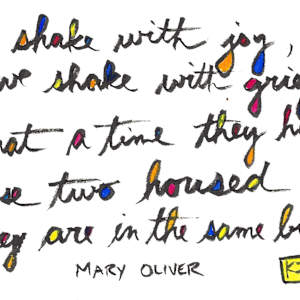 shake with joy,
we shake with grie
at a time they h
se two housed
ey are in the same b
MARY OLIVER